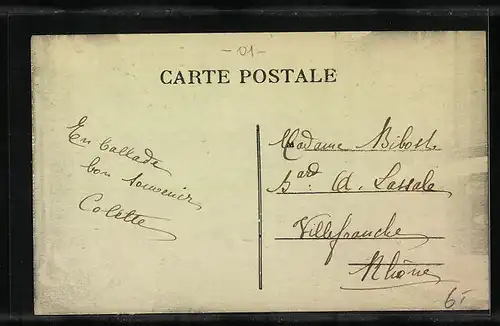 -01-
CARTE POSTALE
En ballade
bon souvenir
Colette
Madame Bibost
Bard: A. Lassale
Villefranche
Rhône
6